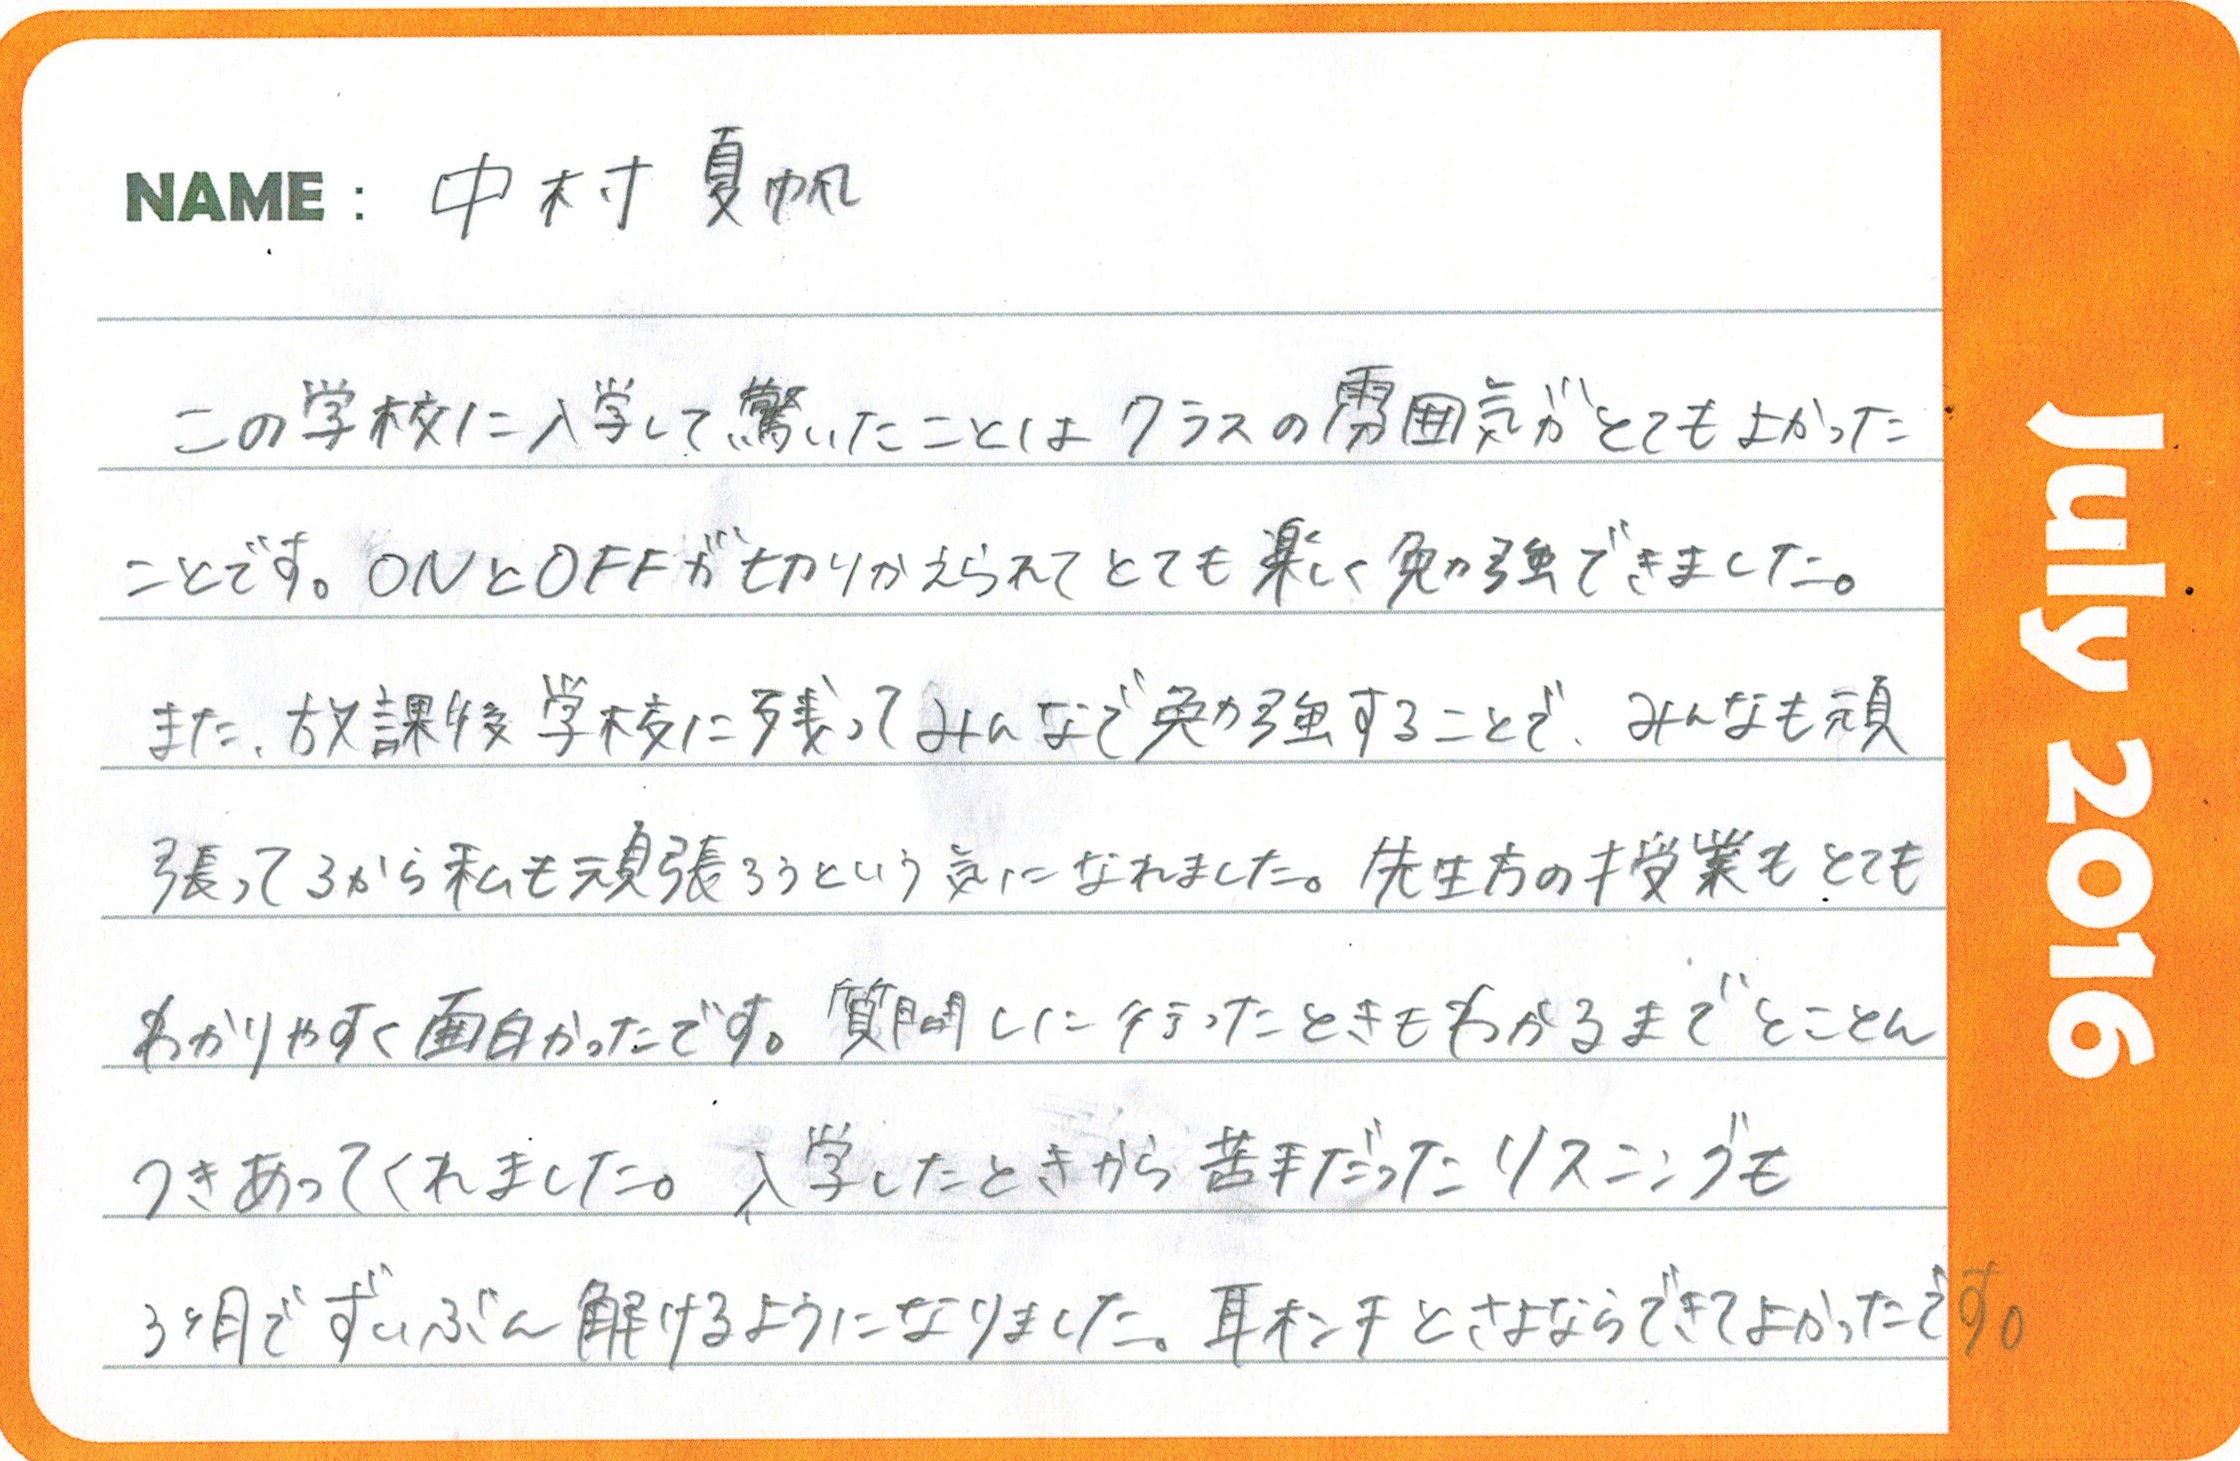 NAME : 中村 夏帆
この学校に入学して驚いたことは クラスの雰囲気がとてもよかった
ことです。ONとOFFが切りかえられてとても楽しく勉強できました。
また、放課後学校に残ってみんなで勉強することで、みんなも頑
張ってるから私も頑張ろうという気になれました。先生方の授業もとても
わかりやすく面白かったです。質問しに行ったときもわかるまでとことん
つきあってくれました。入学したときから苦手だったリスニングも
3ヶ月でずいぶん解けるようになりました。耳オンチとさよならできてよかったです。
July 2016